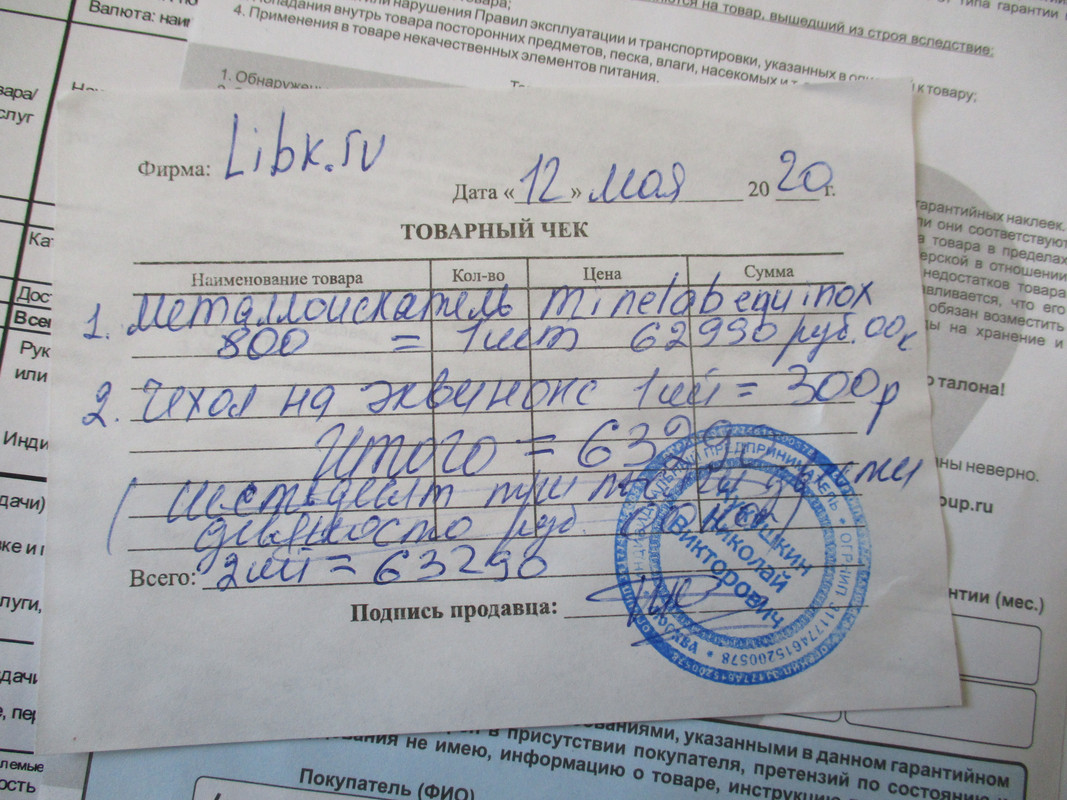 Валюта: наи
вара/
слуг
Кат
Дос
Всег
Рук
или
Инди
дачи)
ке и г
луги,
дачи
е, пер
лемые
ость
или нарушения Правил эксплуатации и транспортировки, указанных в
к товару;
попадания внутрь товара посторонних предметов, песка, влаги, насекомых и т
4. Применения в товаре некачественных элементов питания.
на товар, вышедший из строя вследствие:
типа гарантии
1. Обнаружен
Фирма: Libk.ru
Дата «12» мая 2020 г.
ТОВАРНЫЙ ЧЕК
Наименование товара Кол-во Цена Сумма
1. Металлоискатель minelab equinox
800 = 1 шт 62990 руб. 00к
2. Чехол на эквинокс 1 шт = 300р
Итого = 63290
(шестьдесят три тысячи двести
девяносто руб. 00 коп)
Всего: 2 шт = 63290
Подпись продавца:
ИНДИВИДУАЛЬНЫЙ ПРЕДПРИНИМАТЕЛЬ • ОГРНИП 311774615200578 • МОСКВА •
НИКОЛАЙ
ВИКТОРОВИЧ
гарантийных наклеек.
ли они соответствуют
а товара в пределах
ерской в отношении
недостатков товара
авливается, что его
обязан возместить
ы на хранение и
о талона!
ны неверно.
oup.ru
нтии (мес.)
ованиями, указанными в данном гарантийном
в присутствии покупателя, претензий по состоянию
вания не имею, информацию о товаре, инструкцию
Покупатель (ФИО)